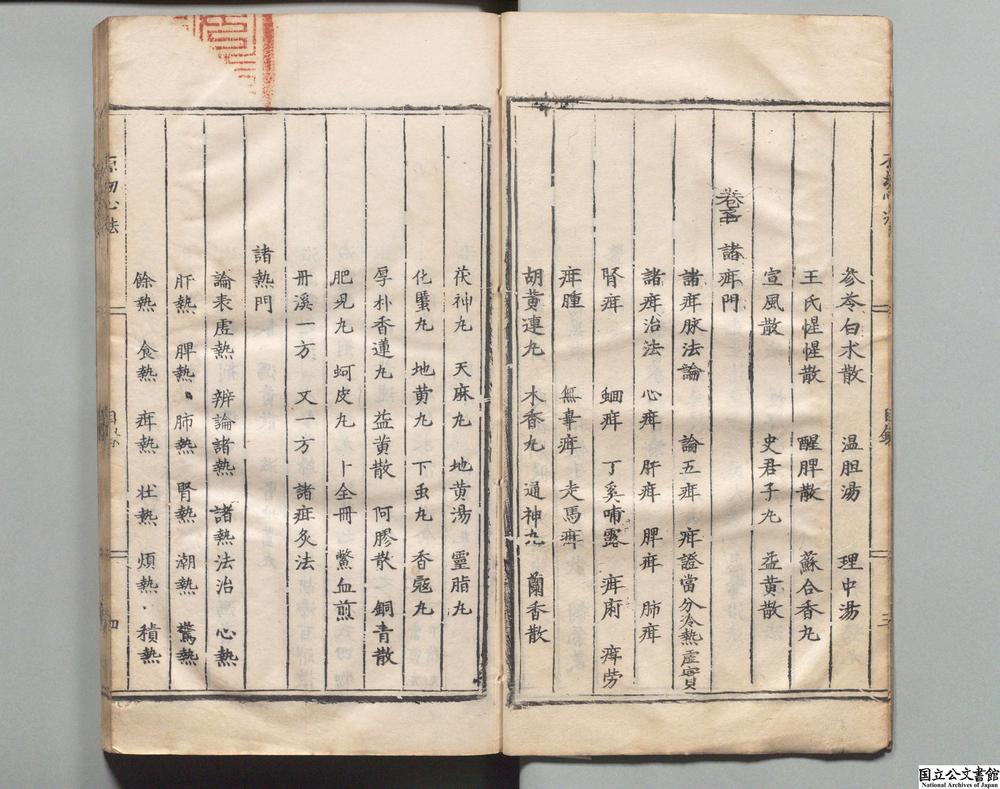 參苓白朮散 温胆湯 理中湯
王氏惺惺散 醒脾散 蘇合香九
宣風散 史君子九 益黄散
卷五 諸疳門
諸疳脉法論 論五疳 疳證當分冷熱虚實
諸疳治法 心疳 肝疳 脾疳 肺疳
腎疳 蛔疳 丁奚哺露 疳㾈 疳劳
疳腫 無辜疳 走馬疳
胡黄連九 木香九 通神九 蘭香散
茯神九 天麻九 地黄湯 靈脂九
化䘌九 地黄九 下虫九 香蔻九
厚朴香連九 益黄散 阿膠散 銅青散
肥児九 蚵皮九 卜全冊 鱉血煎
冊溪一方 又一方 諸疳灸法
諸熱門
論表虚熱 辨論諸熱 諸熱法治 心熱
肝熱 脾熱 肺熱 腎熱 潮熱 驚熱
餘熱 食熱 疳熱 壮熱 煩熱 積熱
原幼心法
目录
四
国立公文書館
National Archives of Japan